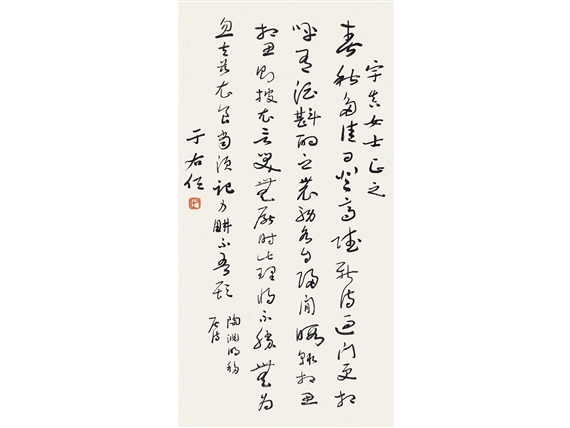 宇真女士正之
春秋多佳日登高賦新詩過門更相
呼有酒斟酌之農務各自歸閒暇輒相思
相思則披衣言笑無厭時此理將不勝無為
忽去茲衣食當須記力耕不吾欺
陶淵明移
居詩
于右任